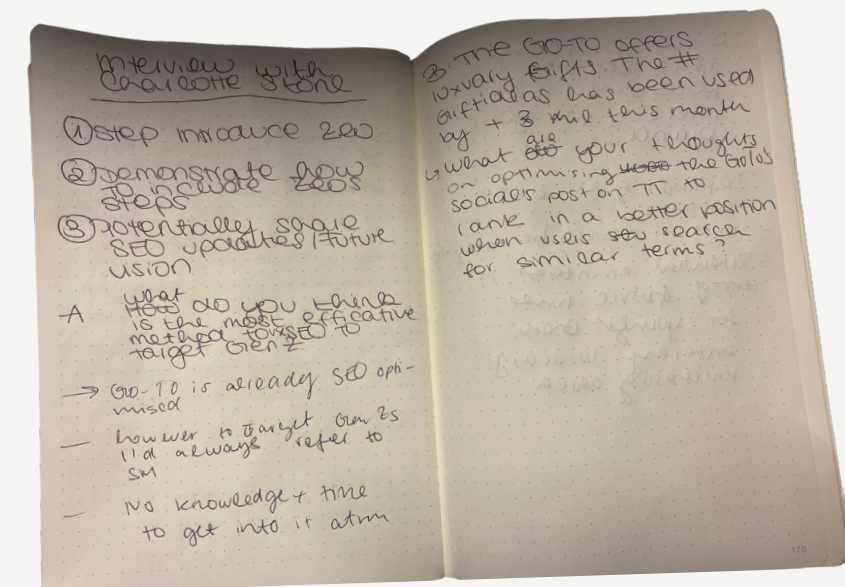 Interview with
Charlotte Stone
① step introduce Zeo
② Demonstrate how
to include Zeos
steps
③ Potentially share
SEO updates / future
vision
A what
How do you think
is the most efficative
method to SEO to
target Gen Z
→ GO-TO is already SEO opti-
mised
— however to target Gen Zs
I'd always refer to
SM
— No knowledge + time
to get into it atm
B. The GO-TO offers
luxuary gifts. The #
Giftideas has been used
by + 3 mil this month
↳ what are your thoughts
on optimising the GoTo's
social's post on TT to
rank in a better position
when users search
for similar terms?
175